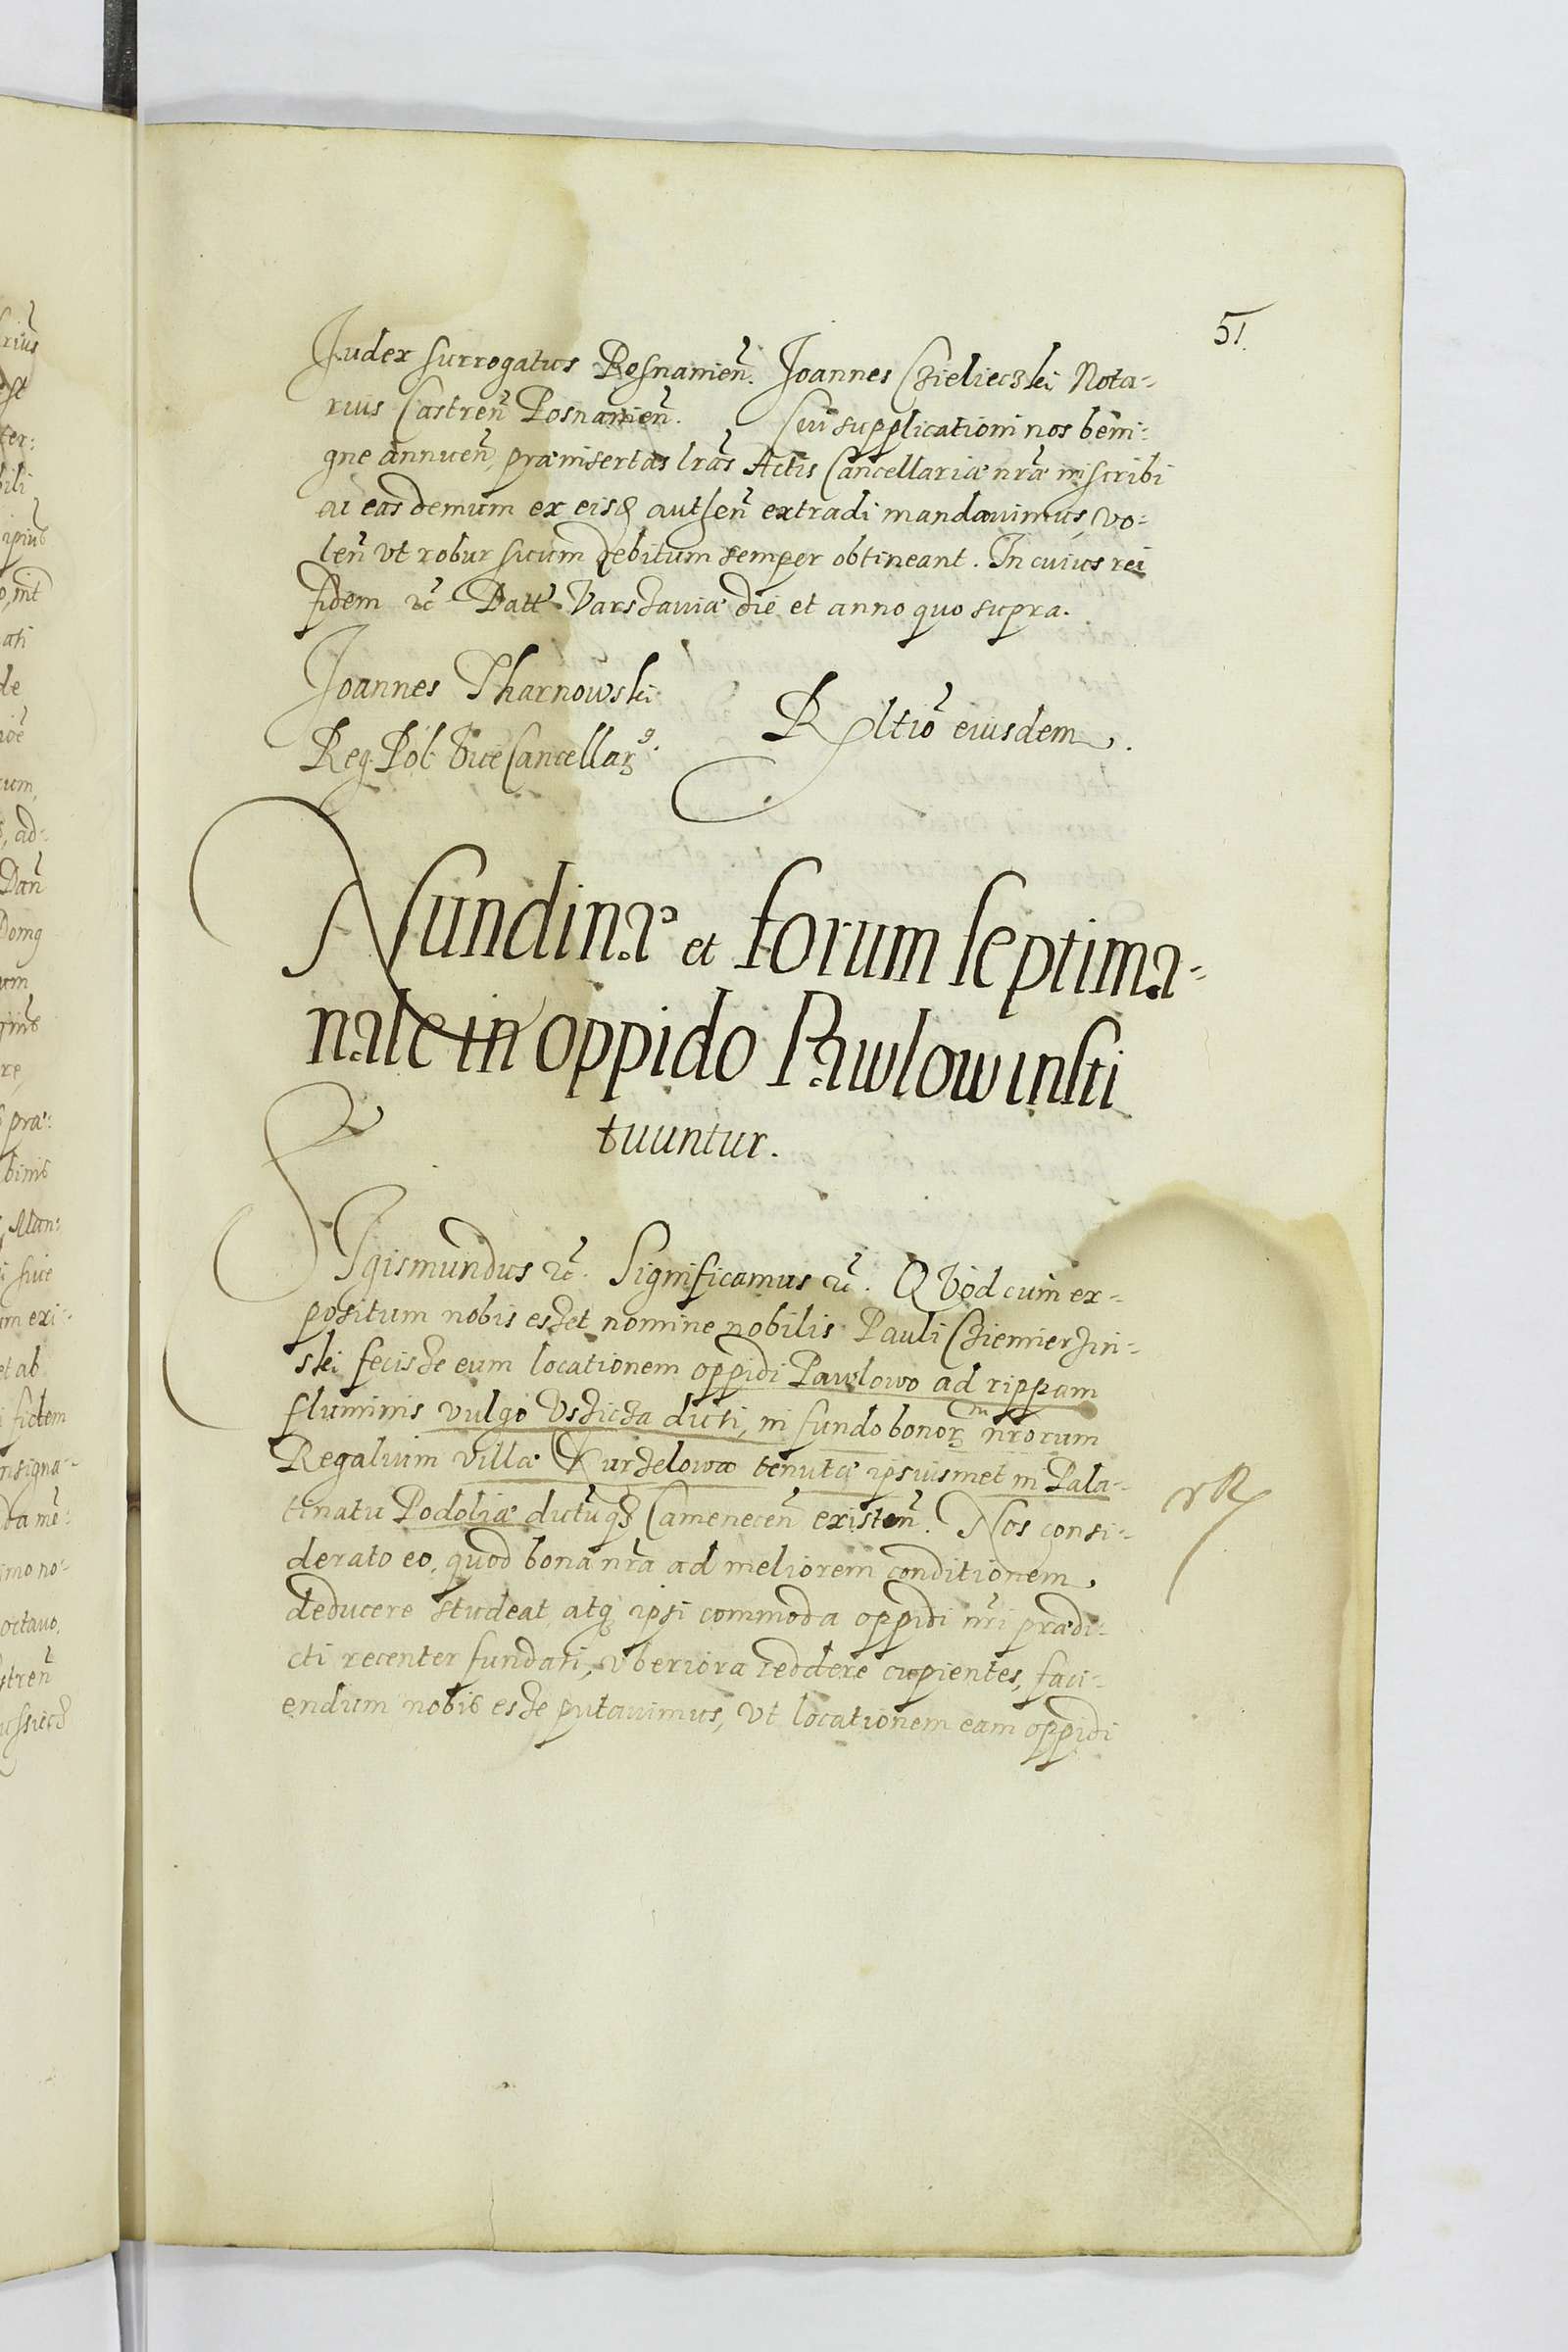 51.
Judex surrogatus Posnanien̄. Joannes Czielieczki Nota-
rius Castren̄ Posnanien̄. Cui supplicationi nos beni-
gne annuen̄, præinsertas lr̄as Actis Cancellariæ nr̄æ inscribi
ac easdemum ex eisdꝫ authen̄ extradi mandavimus, vo-
len̄ vt robur suum debitum semper obtineant. In cuius rei
fidem ꝛc̄ Datt̄ Varszaviæ die et anno quo supra.
Joannes Tharnowski
Reg. Pol. ViceCancellarꝫ.
Rltiō eiusdem.
Nundinæ et forum septima-
nale in oppido Pawlow insti
tuuntur.
SIgismundus ꝛc̄. Significamus ꝛc̄. QVod cum ex-
positum nobis esset nomine nobilis Pauli Cziemierzin-
ski fecisse eum locationem oppidi Pawlowo ad rippam
fluminis vulgo Uszicza dicti, in fundo bonorꝫ nr̄orum
Regalium villæ Kurzelowa tenutæ ipsiusmet in Pala-
tinatu Podoliæ dictūqꝫ Camenecen̄ existen̄. Nos consi-
derato eo, quod bona nr̄a ad meliorem conditionem,
deducere studeat, atqꝫ ipsi commoda oppidi nr̄i prædi-
cti recenter fundati, vberiora reddere cupientes, faci-
endum nobis esse putavimus, vt locationem eam oppidi